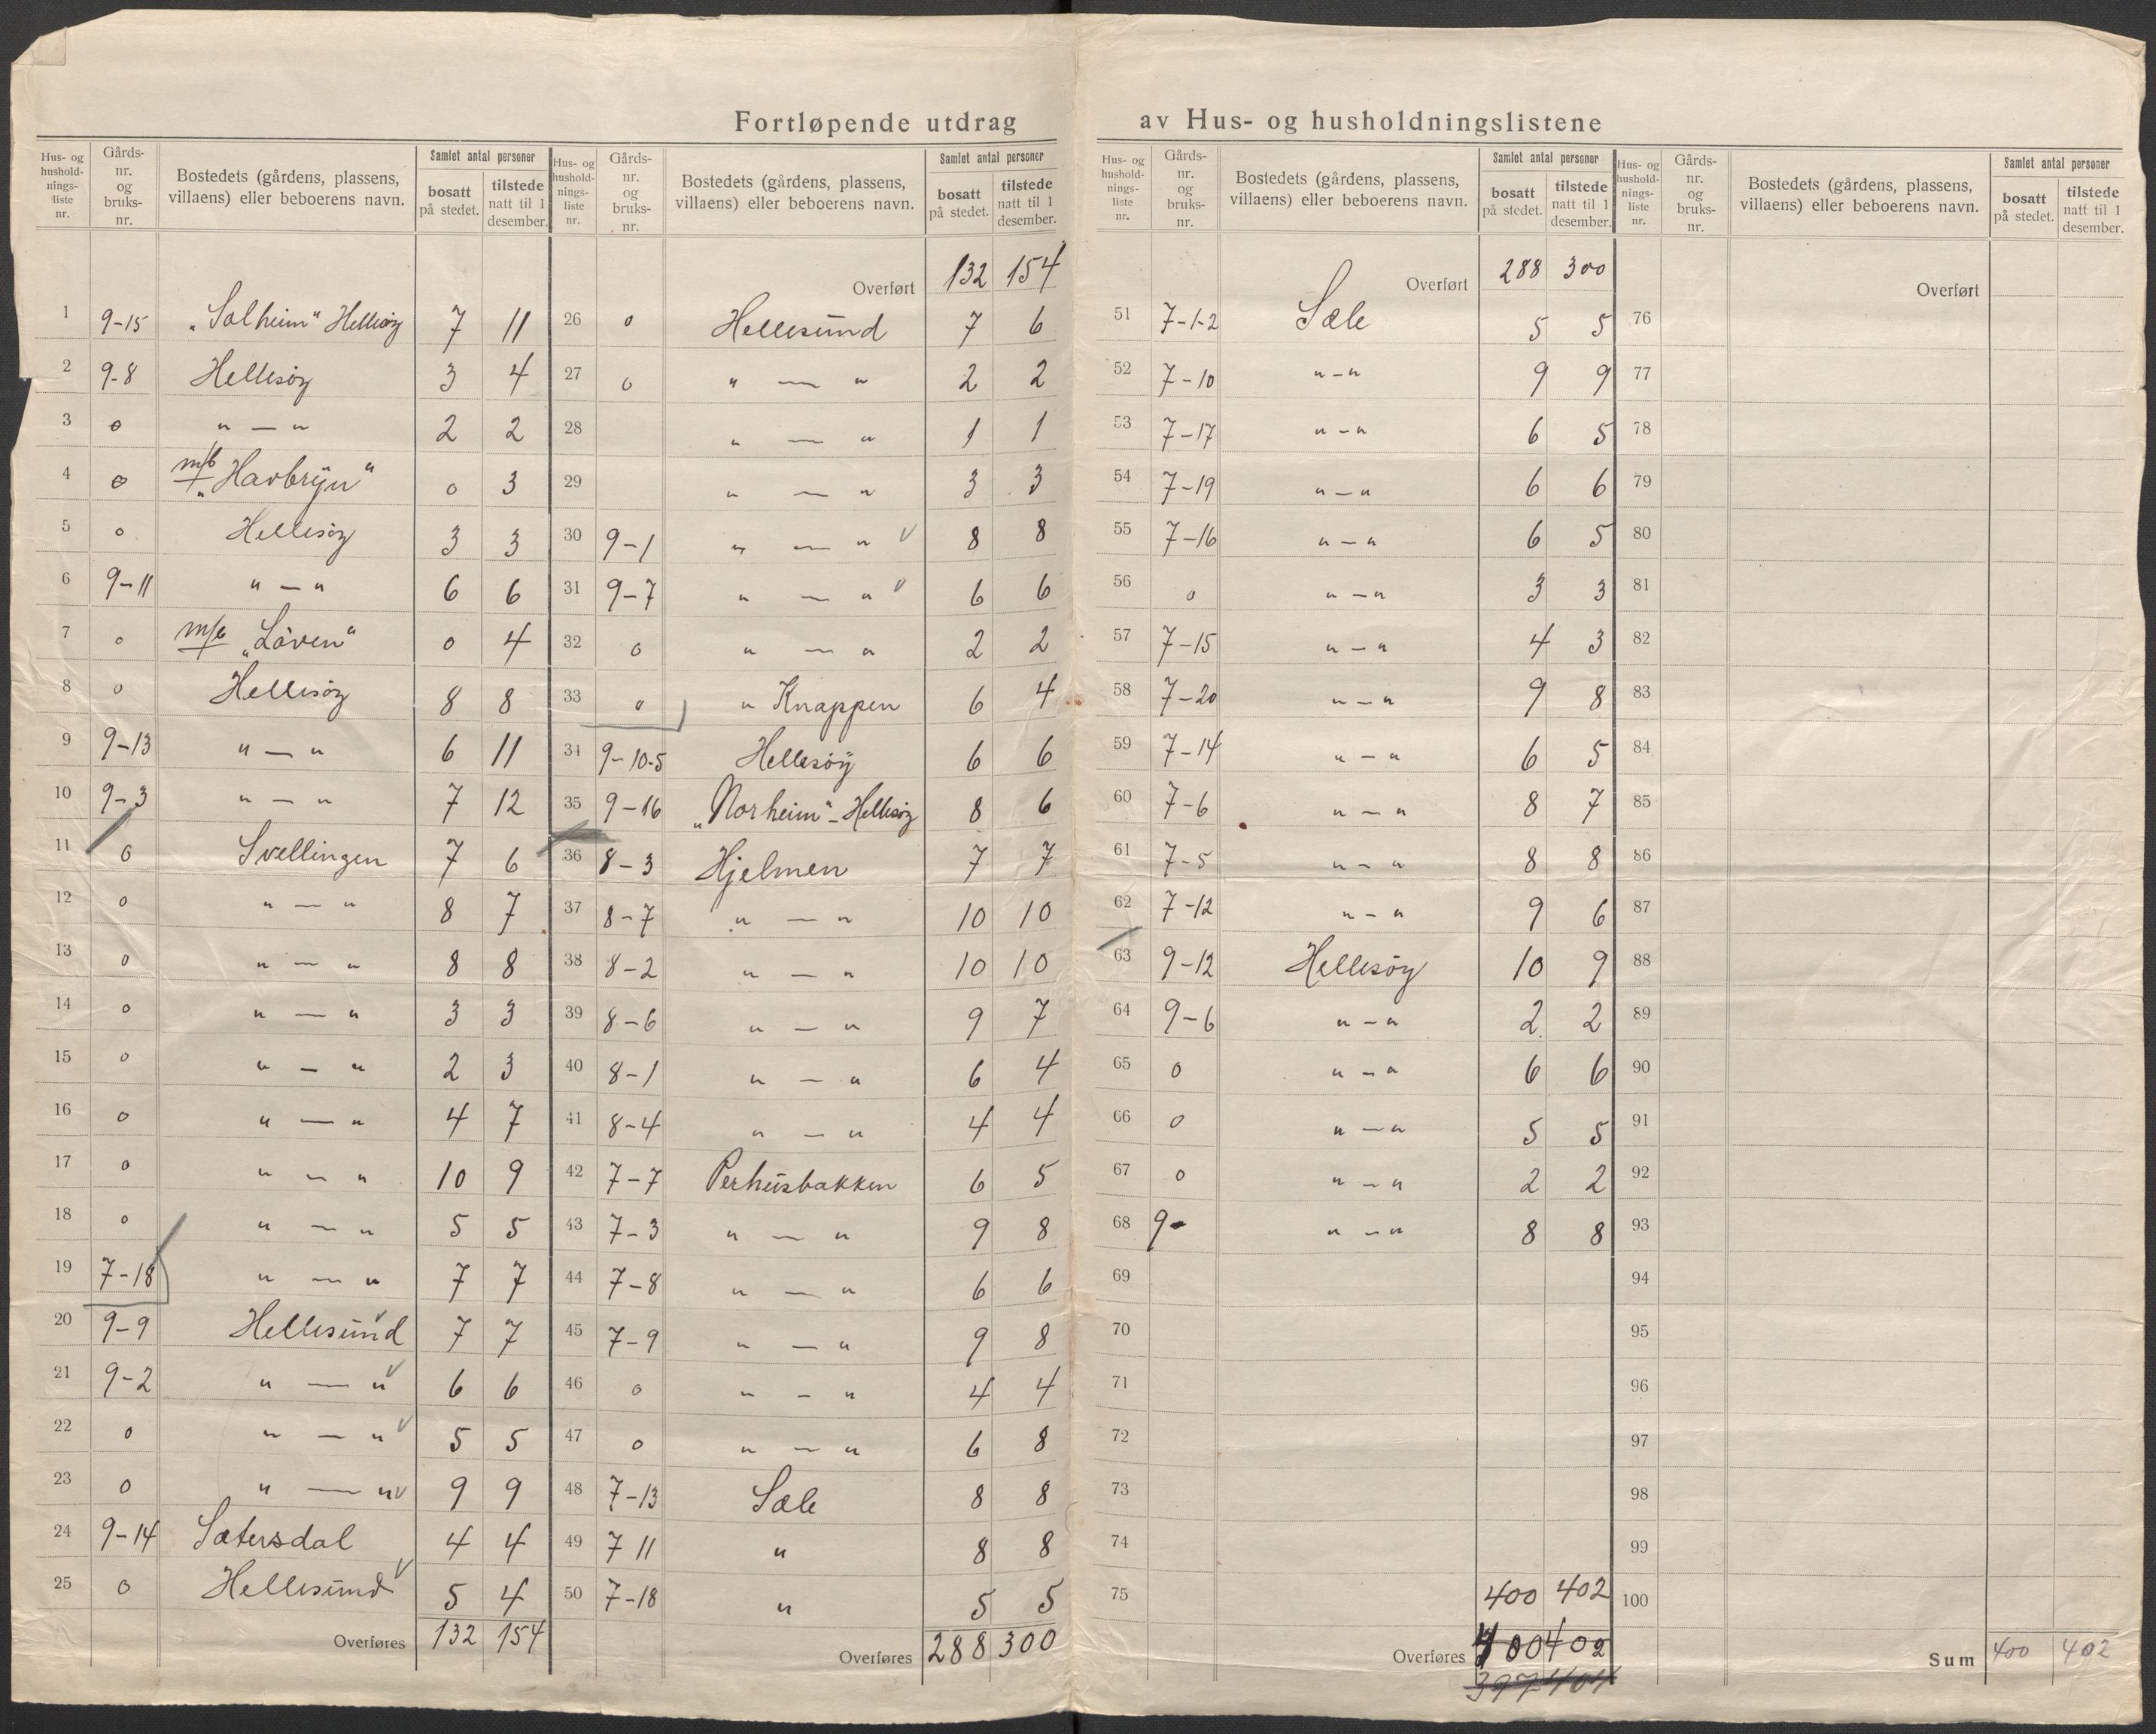 Fortløpende utdrag av Hus- og husholdningslistene
Hus- og hushold-nings-liste nr. | Gårds-nr. og bruks-nr. | Bostedets (gårdens, plassens, villaens) eller beboerens navn. | Samlet antal personer | bosatt på stedet. | tilstede natt til 1 desember.
1 9-15 „Solheim" Hellisöy 7 11
2 9-8 Hellisöy 3 4
3 0 " — " 2 2
4 0 m/b „Havbryn" 0 3
5 0 Hellisöy 3 3
6 9-11 " — " 6 6
7 0 m/b „Löven" 0 4
8 0 Hellisöy 8 8
9 9-13 " — " 6 11
10 9-3 " — " 7 12
11 0 Svellingen 7 6
12 0 " — " 8 7
13 0 " — " 8 8
14 0 " — " 3 3
15 0 " — " 2 3
16 0 " — " 4 7
17 0 " — " 10 9
18 0 " — " 5 5
19 7-18 " — " 7 7
20 9-9 Hellesund 7 7
21 9-2 " — " 6 6
22 0 " — " 5 5
23 0 " — " 9 9
24 9-14 Sætersdal 4 4
25 0 Hellesund 5 4
Overføres 132 154
Hus- og hushold-nings-liste nr. | Gårds-nr. og bruks-nr. | Bostedets (gårdens, plassens, villaens) eller beboerens navn. | Samlet antal personer | bosatt på stedet. | tilstede natt til 1 desember.
Overført 132 154
26 0 Hellesund 7 6
27 0 " — " 2 2
28 " — " 1 1
29 " — " 3 3
30 9-1 " — " 8 8
31 9-7 " — " 6 6
32 0 " — " 2 2
33 0 " Knappen 6 4
34 9-10-5 Hellesöy 6 6
35 9-16 „Norheim" - Hellisöy 8 6
36 8-3 Hjelmen 7 7
37 8-7 " — " 10 10
38 8-2 " — " 10 10
39 8-6 " — " 9 7
40 8-1 " — " 6 4
41 8-4 " — " 4 4
42 7-7 Perhusbakken 6 5
43 7-3 " — " 9 8
44 7-8 " — " 6 6
45 7-9 " — " 9 8
46 0 " — " 4 4
47 0 " — " 6 8
48 7-13 Sæle 8 8
49 7 11 " 8 8
50 7-18 " 5 5
Overføres 288 300
Hus- og hushold-nings-liste nr. | Gårds-nr. og bruks-nr. | Bostedets (gårdens, plassens, villaens) eller beboerens navn. | Samlet antal personer | bosatt på stedet. | tilstede natt til 1 desember.
Overført 288 300
51 7-1-2 Sæle 5 5
52 7-10 " - " 9 9
53 7-17 " - " 6 5
54 7-19 " - " 6 6
55 7-16 " - " 6 5
56 0 " - " 3 3
57 7-15 " - " 4 3
58 7-20 " - " 9 8
59 7-14 " - " 6 5
60 7-6 " - " 8 7
61 7-5 " - " 8 8
62 7-12 " - " 9 6
63 9-12 Hellesöy 10 9
64 9-6 " - " 2 2
65 0 " - " 6 6
66 0 " - " 5 5
67 0 " - " 2 2
68 9- " - " 8 8
69
70
71
72
73
74
75 400 402
Overføres 400 402
397 404
Hus- og hushold-nings-liste nr. | Gårds-nr. og bruks-nr. | Bostedets (gårdens, plassens, villaens) eller beboerens navn. | Samlet antal personer | bosatt på stedet. | tilstede natt til 1 desember.
Overført
76
77
78
79
80
81
82
83
84
85
86
87
88
89
90
91
92
93
94
95
96
97
98
99
100
Sum 400 402